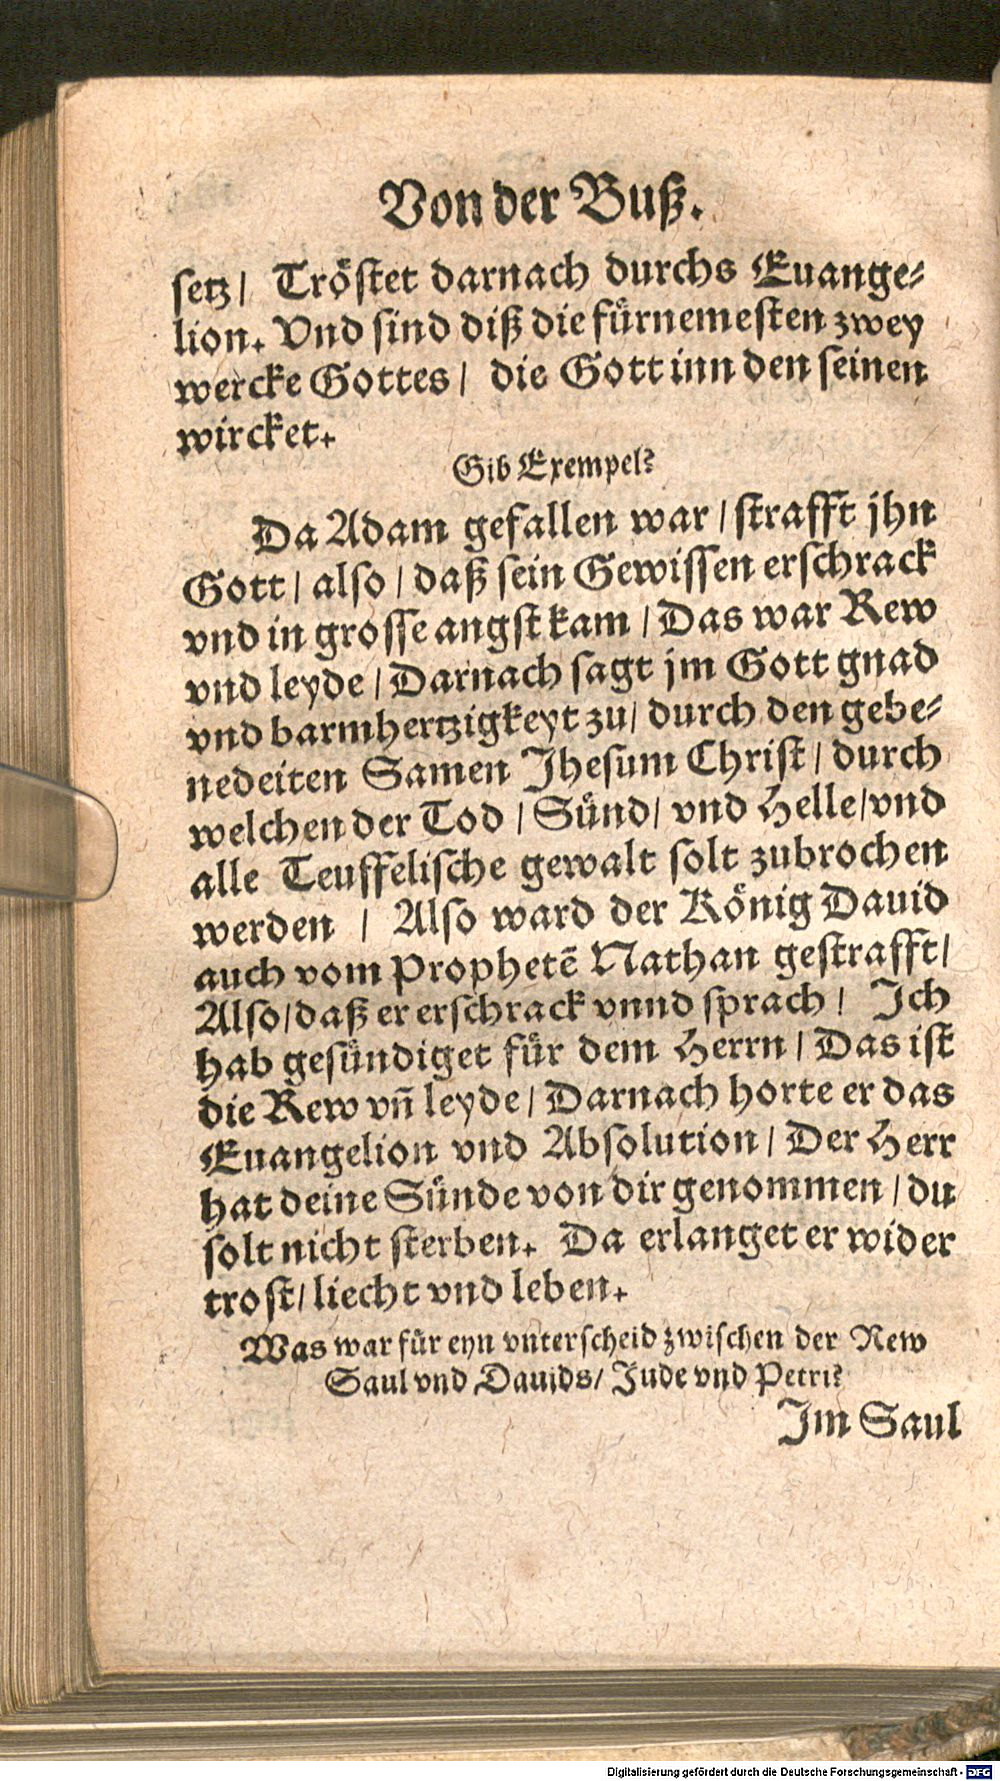 Von der Buß.
setz/ Tröstet darnach durchs Euange⸗
lion. Vnd sind diß die fürnemesten zwey
wercke Gottes/ die Gott inn den seinen
wircket.
Gib Exempel?
Da Adam gefallen war/ strafft jhn
Gott/ also/ daß sein Gewissen erschrack
vnd in grosse angst kam/ Das war Rew
vnd leyde/ Darnach sagt jm Gott gnad
vnd barmhertzigkeyt zu/ durch den gebe⸗
nedeiten Samen Jhesum Christ/ durch
welchen der Tod/ Sünd/ vnd Helle/ vnd
alle Teuffelische gewalt solt zubrochen
werden / Also ward der König Dauid
auch vom Prophetē Nathan gestrafft/
Also/ daß er erschrack vnnd sprach/ Jch
hab gesündiget für dem Herrn/ Das ist
die Rew vn̄ leyde/ Darnach horte er das
Euangelion vnd Absolution/ Der Herr
hat deine Sünde von dir genommen/ du
solt nicht sterben. Da erlanget er wider
trost/ liecht vnd leben.
Was war für eyn vnterscheid zwischen der Rew
Saul vnd Dauids/ Jude vnd Petri?
Jm Saul
Digitalisierung gefördert durch die Deutsche Forschungsgemeinschaft - DFG